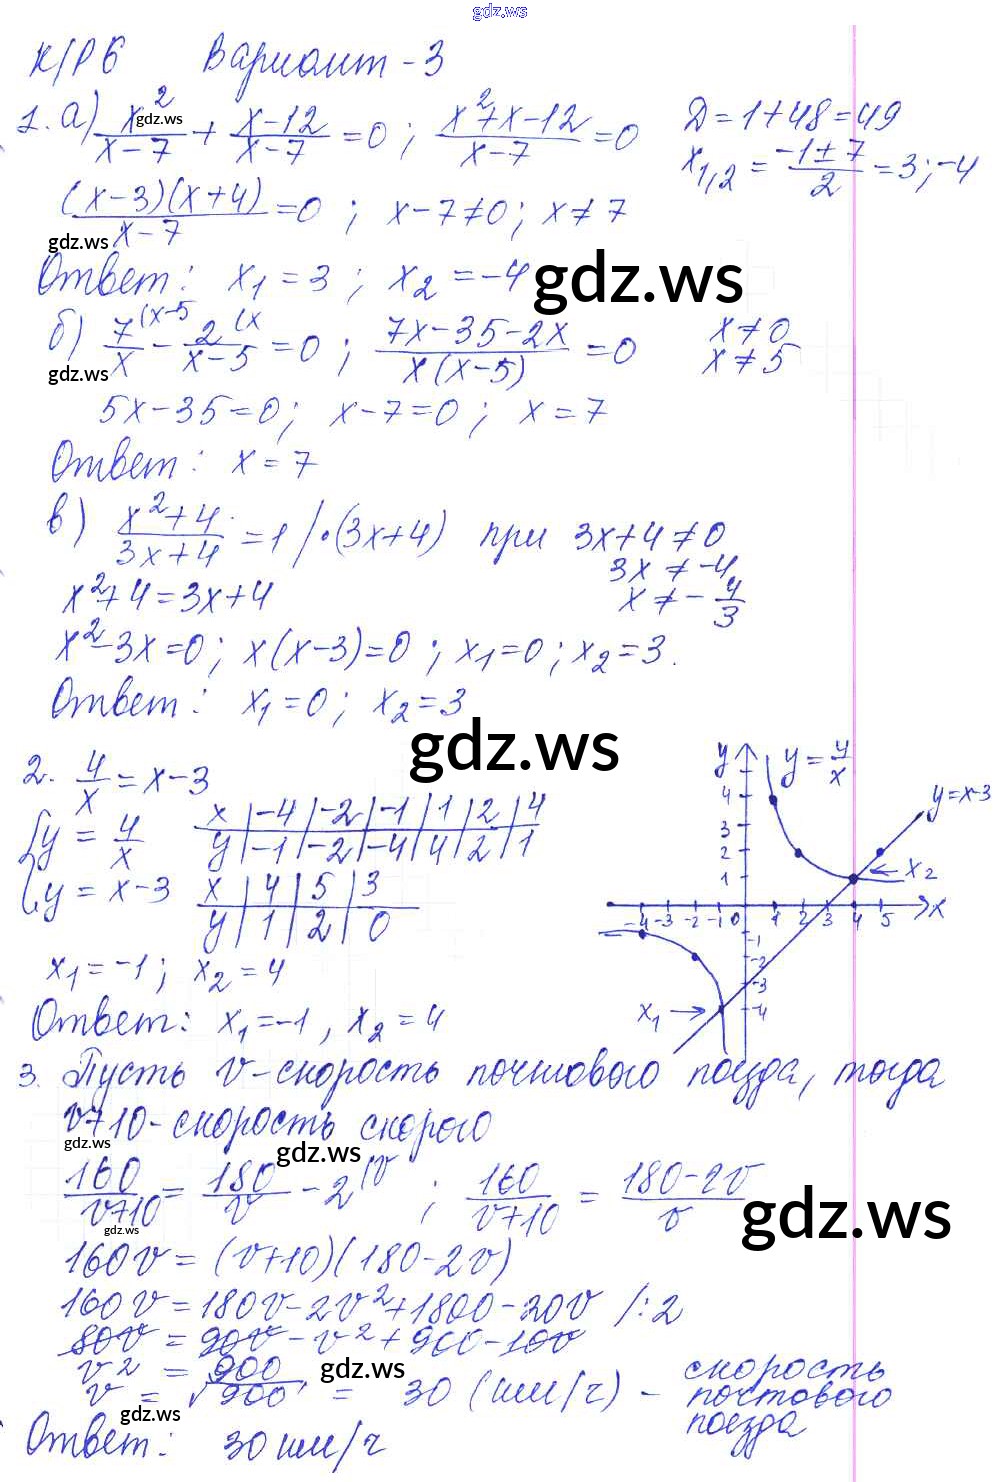 gdz.ws
К/Р 6 Вариант - 3
1. а) x²/(x-7) + (x-12)/(x-7) = 0 ; (x²+x-12)/(x-7) = 0 D = 1+48 = 49
gdz.ws
x₁,₂ = (-1±7)/2 = 3 ; -4
(x-3)(x+4)/(x-7) = 0 ; x-7≠0 ; x≠7
gdz.ws
Ответ: x₁ = 3 ; x₂ = -4
gdz.ws
б) 7/x (x-5 - 2/(x-5) (x = 0 ; (7x-35-2x)/(x(x-5)) = 0 x≠0
x≠5
gdz.ws
5x-35=0 ; x-7=0 ; x=7
Ответ: x = 7
в) (x²+4)/(3x+4) = 1 /·(3x+4) при 3x+4≠0
3x ≠ -4
x²+4 = 3x+4 x ≠ -4/3
x²-3x=0 ; x(x-3)=0 ; x₁=0 ; x₂=3.
Ответ: x₁=0 ; x₂=3
gdz.ws
2. 4/x = x-3
{y = 4/x x | -4 | -2 | -1 | 1 | 2 | 4
y | -1 | -2 | -4 | 4 | 2 | 1
{y = x-3 x | 4 | 5 | 3
y | 1 | 2 | 0
y y = 4/x
y=x-3
4
3
2
1
x₂
-4 -3 -2 -1 0 1 2 3 4 5 x
-1
-2
-3
-4
x₁
x₁=-1 ; x₂ = 4
Ответ: x₁=-1 , x₂ = 4
3. Пусть v-скорость почтового поезда, тогда
v+10-скорость скорого
gdz.ws
gdz.ws
160/(v+10) = 180/v - 2 (v ; 160/(v+10) = (180-2v)/v
gdz.ws
gdz.ws
160v = (v+10)(180-2v)
160v = 180v-2v²+1800-20v /:2
80v = 90v - v² + 900 - 10v
v² = 900
gdz.ws
v = √900 = 30 (км/ч) - скорость
почтового
поезда
gdz.ws
Ответ: 30 км/ч